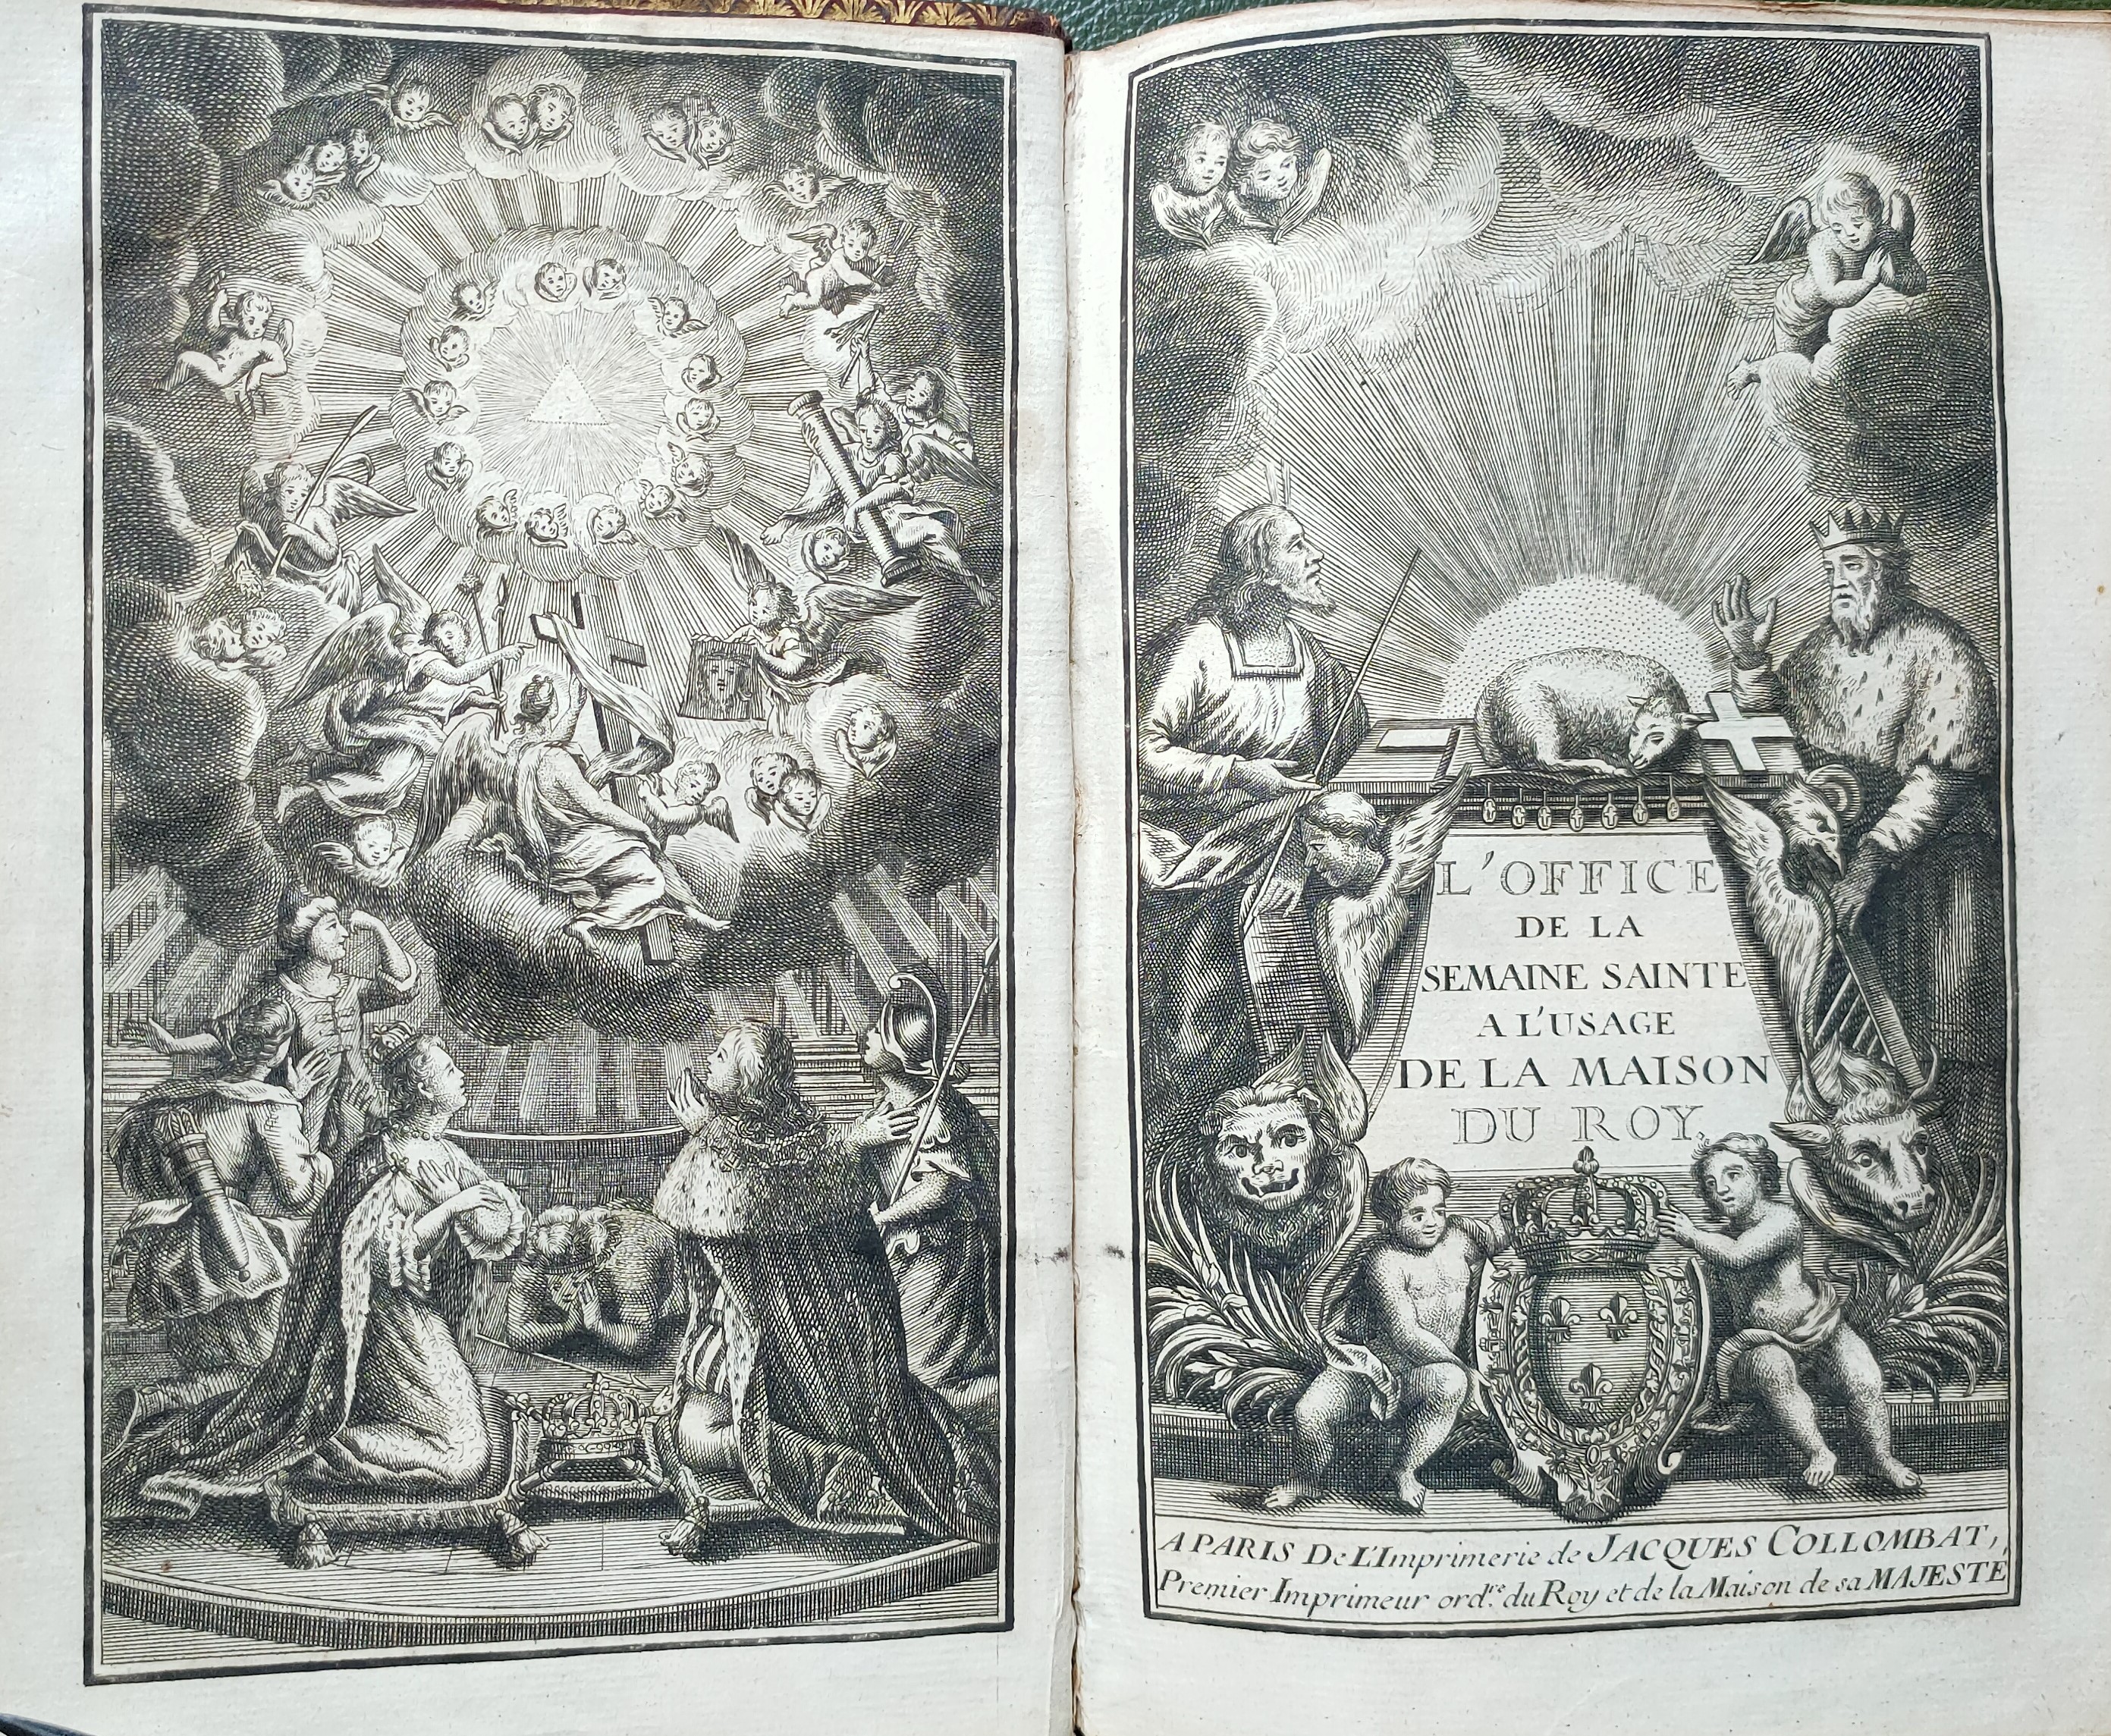 L'OFFICE
DE LA
SEMAINE SAINTE
A L'USAGE
DE LA MAISON
DU ROY,
A PARIS De L'Imprimerie de JACQUES COLLOMBAT,
Premier Imprimeur ord.re du Roy et de la Maison de sa MAJESTÉ